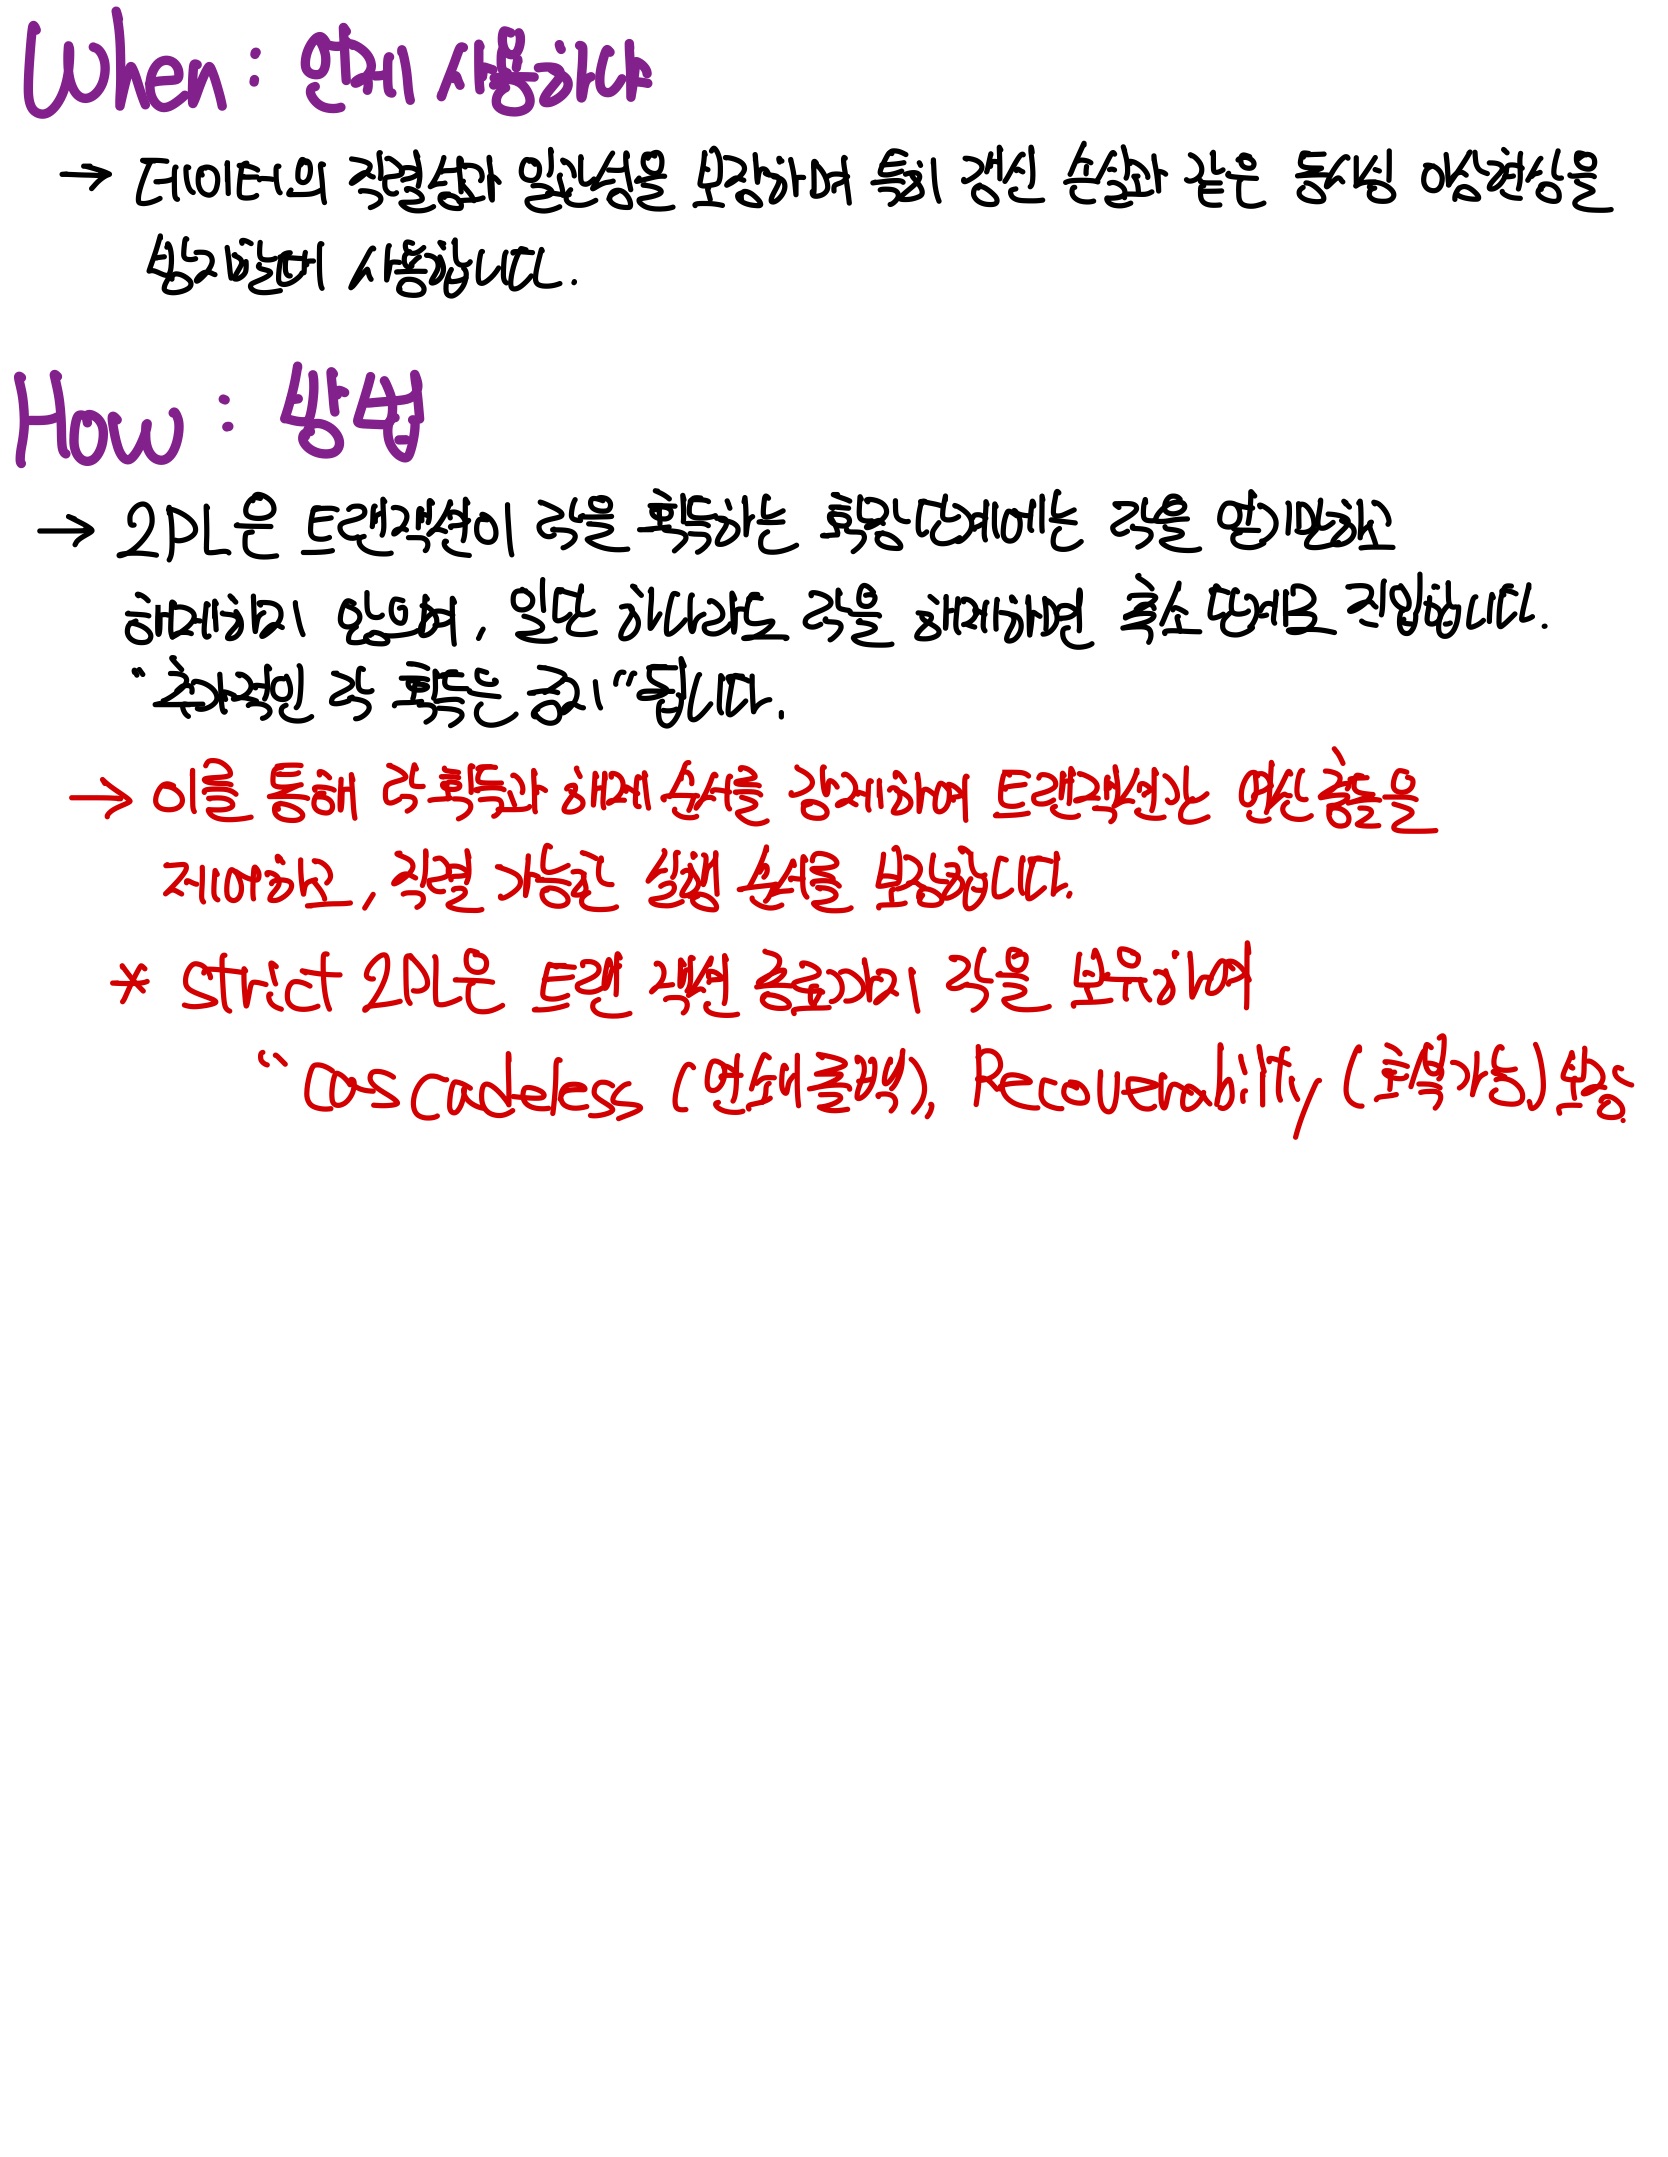 When : 언제 사용하냐
→ 데이터의 직렬성과 일관성을 보장하며 특히 갱신 손실과 같은 동시성 이상현상을
방지할때 사용합니다.
How : 방법
→ 2PL은 트랜잭션이 락을 획득하는 확장단계에는 락을 얻기만하고
해제하지 않으며, 일단 하나라도 락을 해제하면 축소 단계로 진입합니다.
"추가적인 락 획득은 금지"됩니다.
→ 이를 통해 락 획득과 해제 순서를 강제하여 트랜잭션간 연산 충돌을
제어하고, 직렬 가능한 실행 순서를 보장합니다.
* Strict 2PL은 트랜 잭션 종료까지 락을 보유하여
"Cascadeless (연쇄롤백), Recoverability (회복가능) 보장